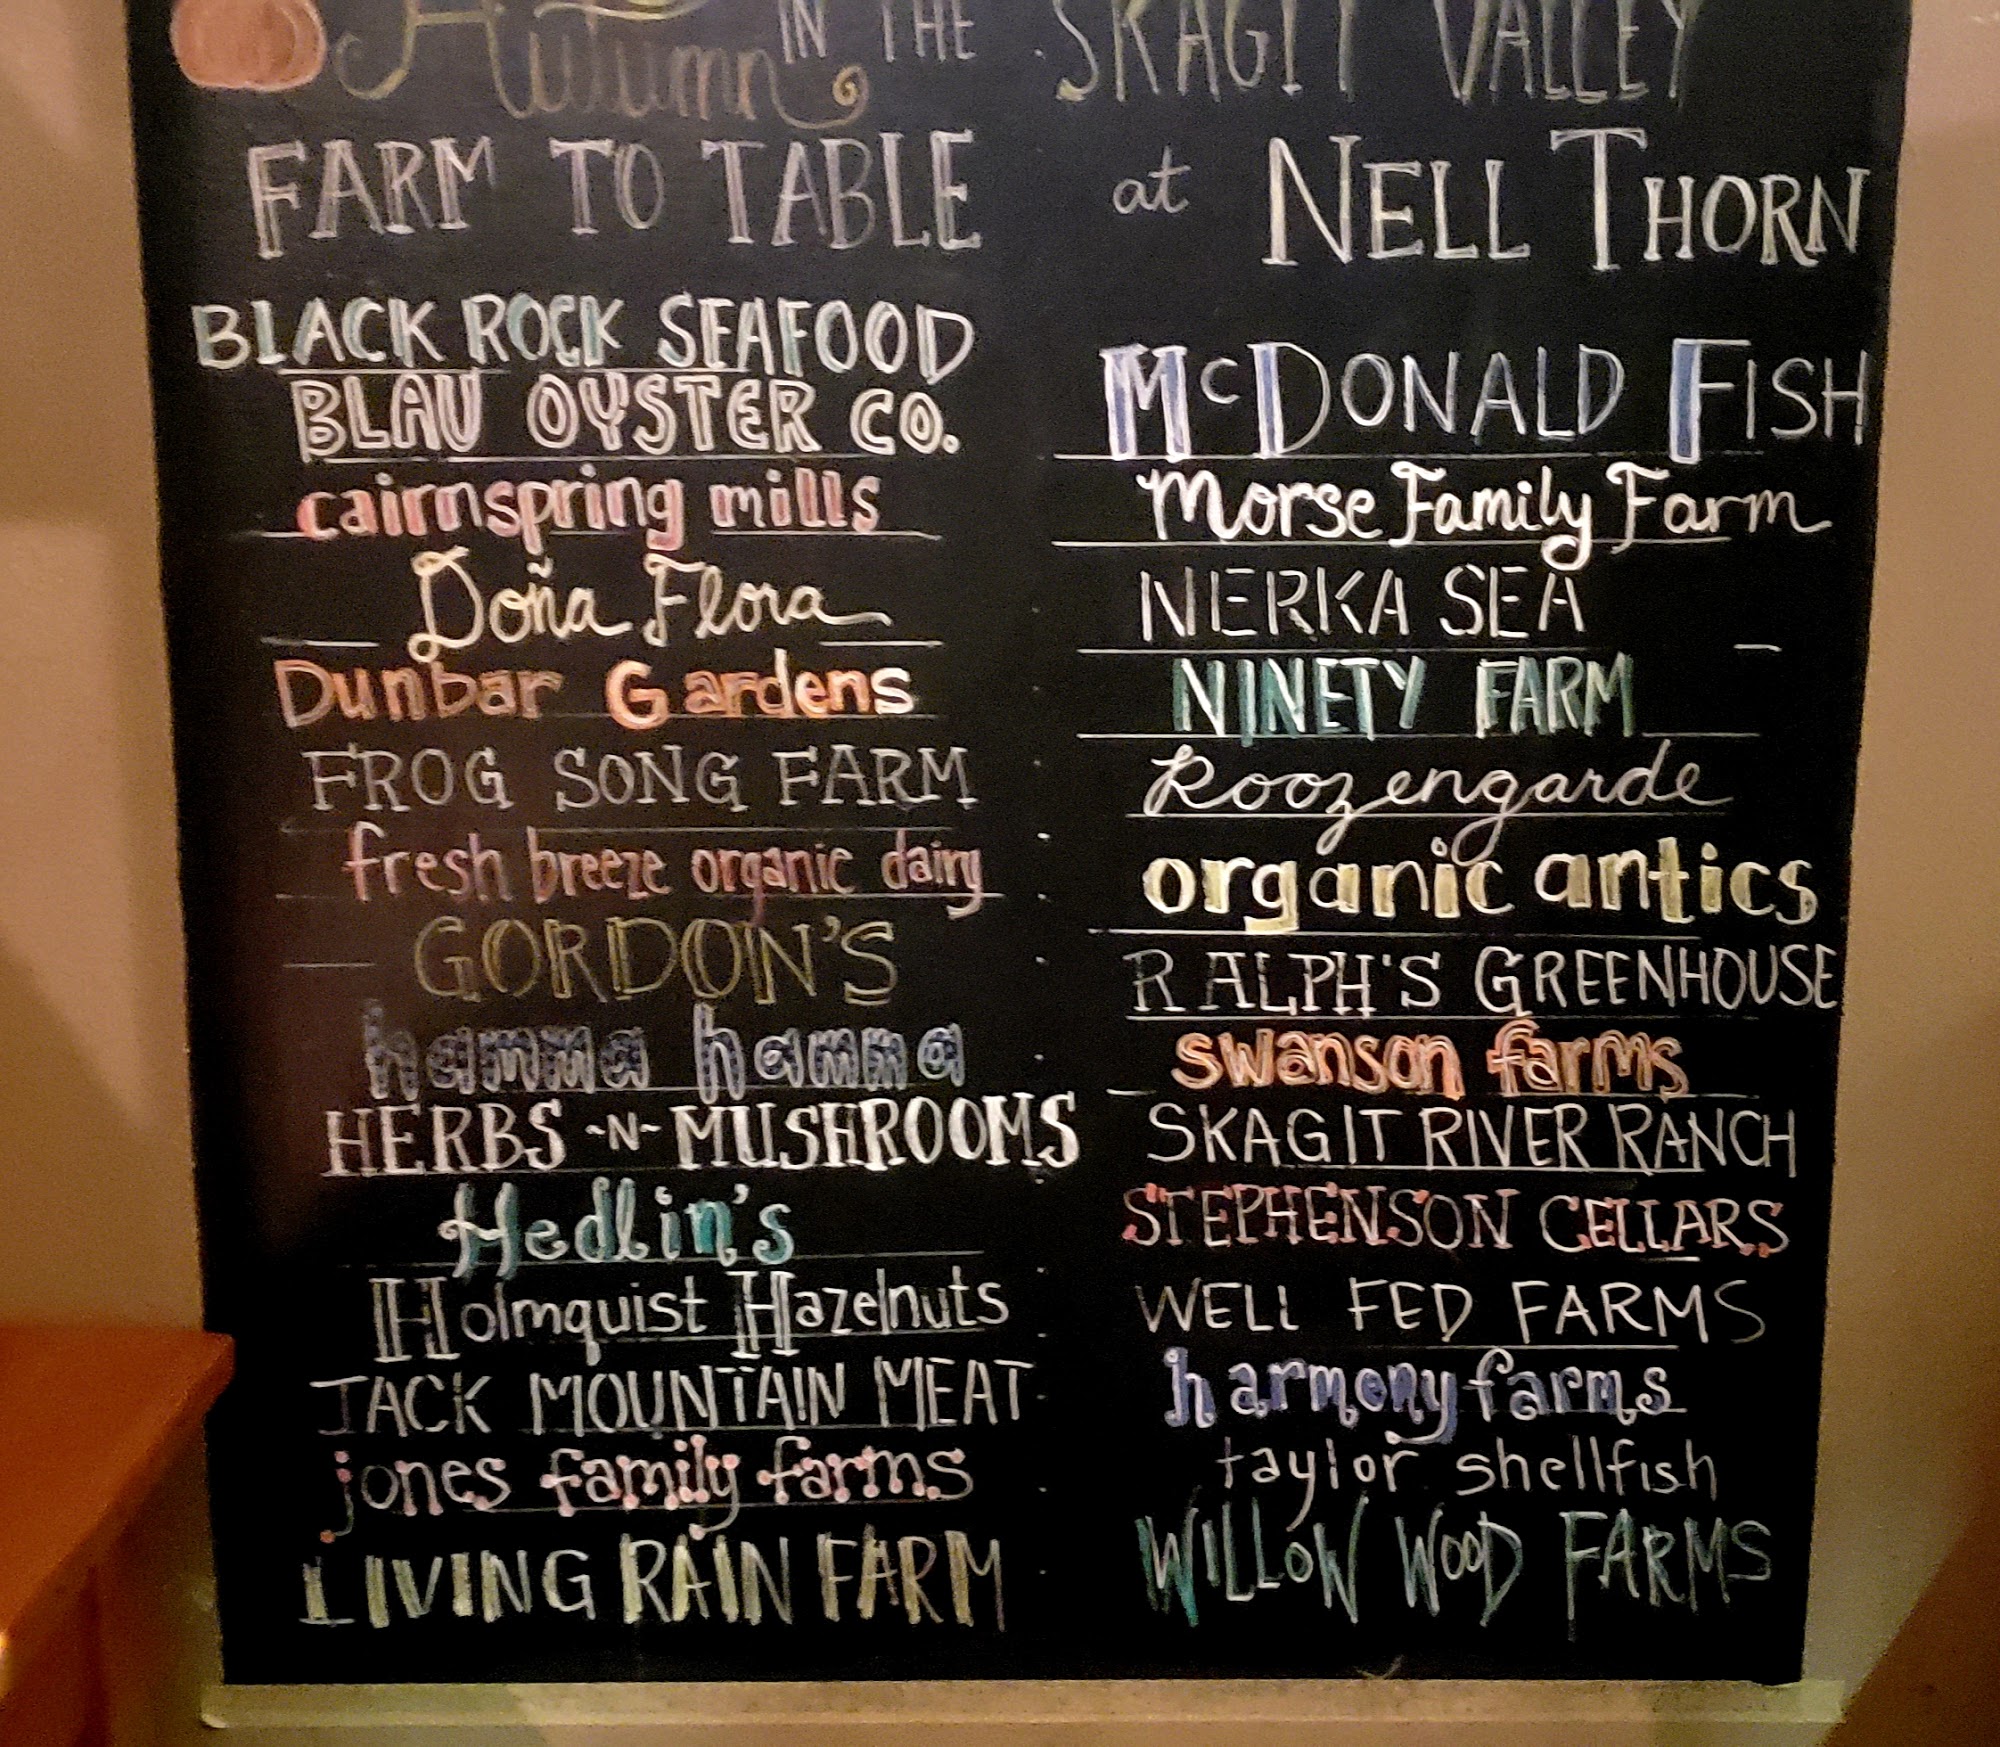 Autumn IN THE SKAGIT VALLEY
FARM TO TABLE at NELL THORN
BLACK ROCK SEAFOOD
BLAU OYSTER CO.
cairnspring mills
Doña Flora
Dunbar Gardens
FROG SONG FARM
fresh breeze organic dairy
GORDON'S
hamma hamma
HERBS -N- MUSHROOMS
Hedlin's
Holmquist Hazelnuts
JACK MOUNTAIN MEAT
jones family farms
LIVING RAIN FARM
McDONALD FISH
Morse Family Farm
NERKA SEA
NINETY FARM
Roozengarde
organic antics
RALPH'S GREENHOUSE
swanson farms
SKAGIT RIVER RANCH
STEPHENSON CELLARS
WELL FED FARMS
harmony farms
taylor shellfish
WILLOW WOOD FARMS